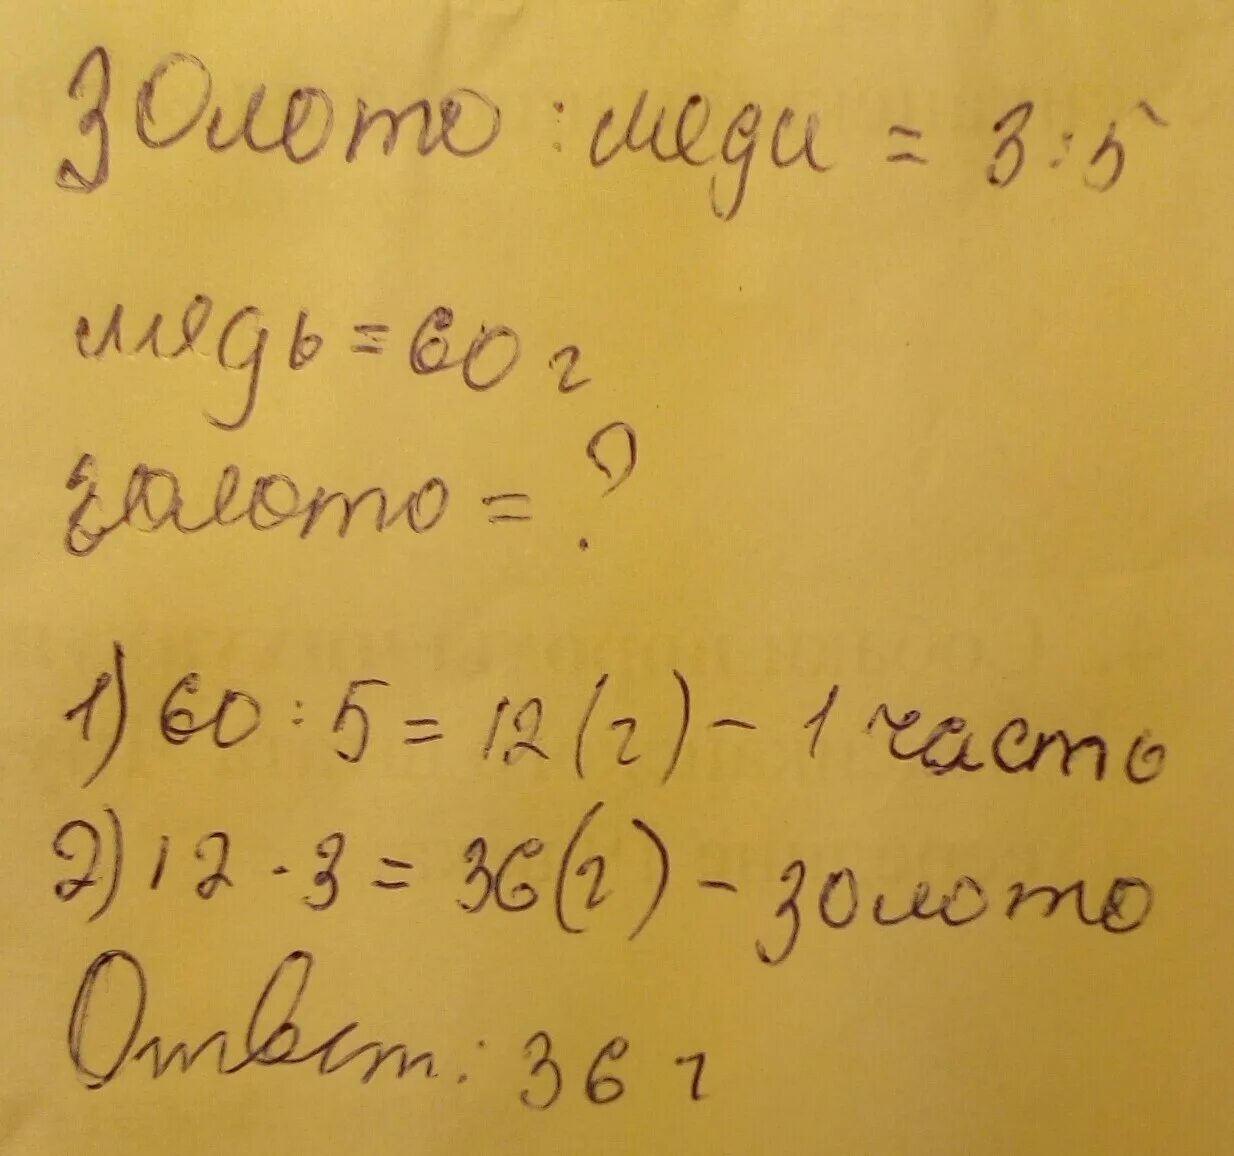 Золото : меди = 3:5
медь = 60 г
золото = ?
1) 60 : 5 = 12 (г) - 1 часть
2) 12 · 3 = 36 (г) - золото
Ответ: 36 г